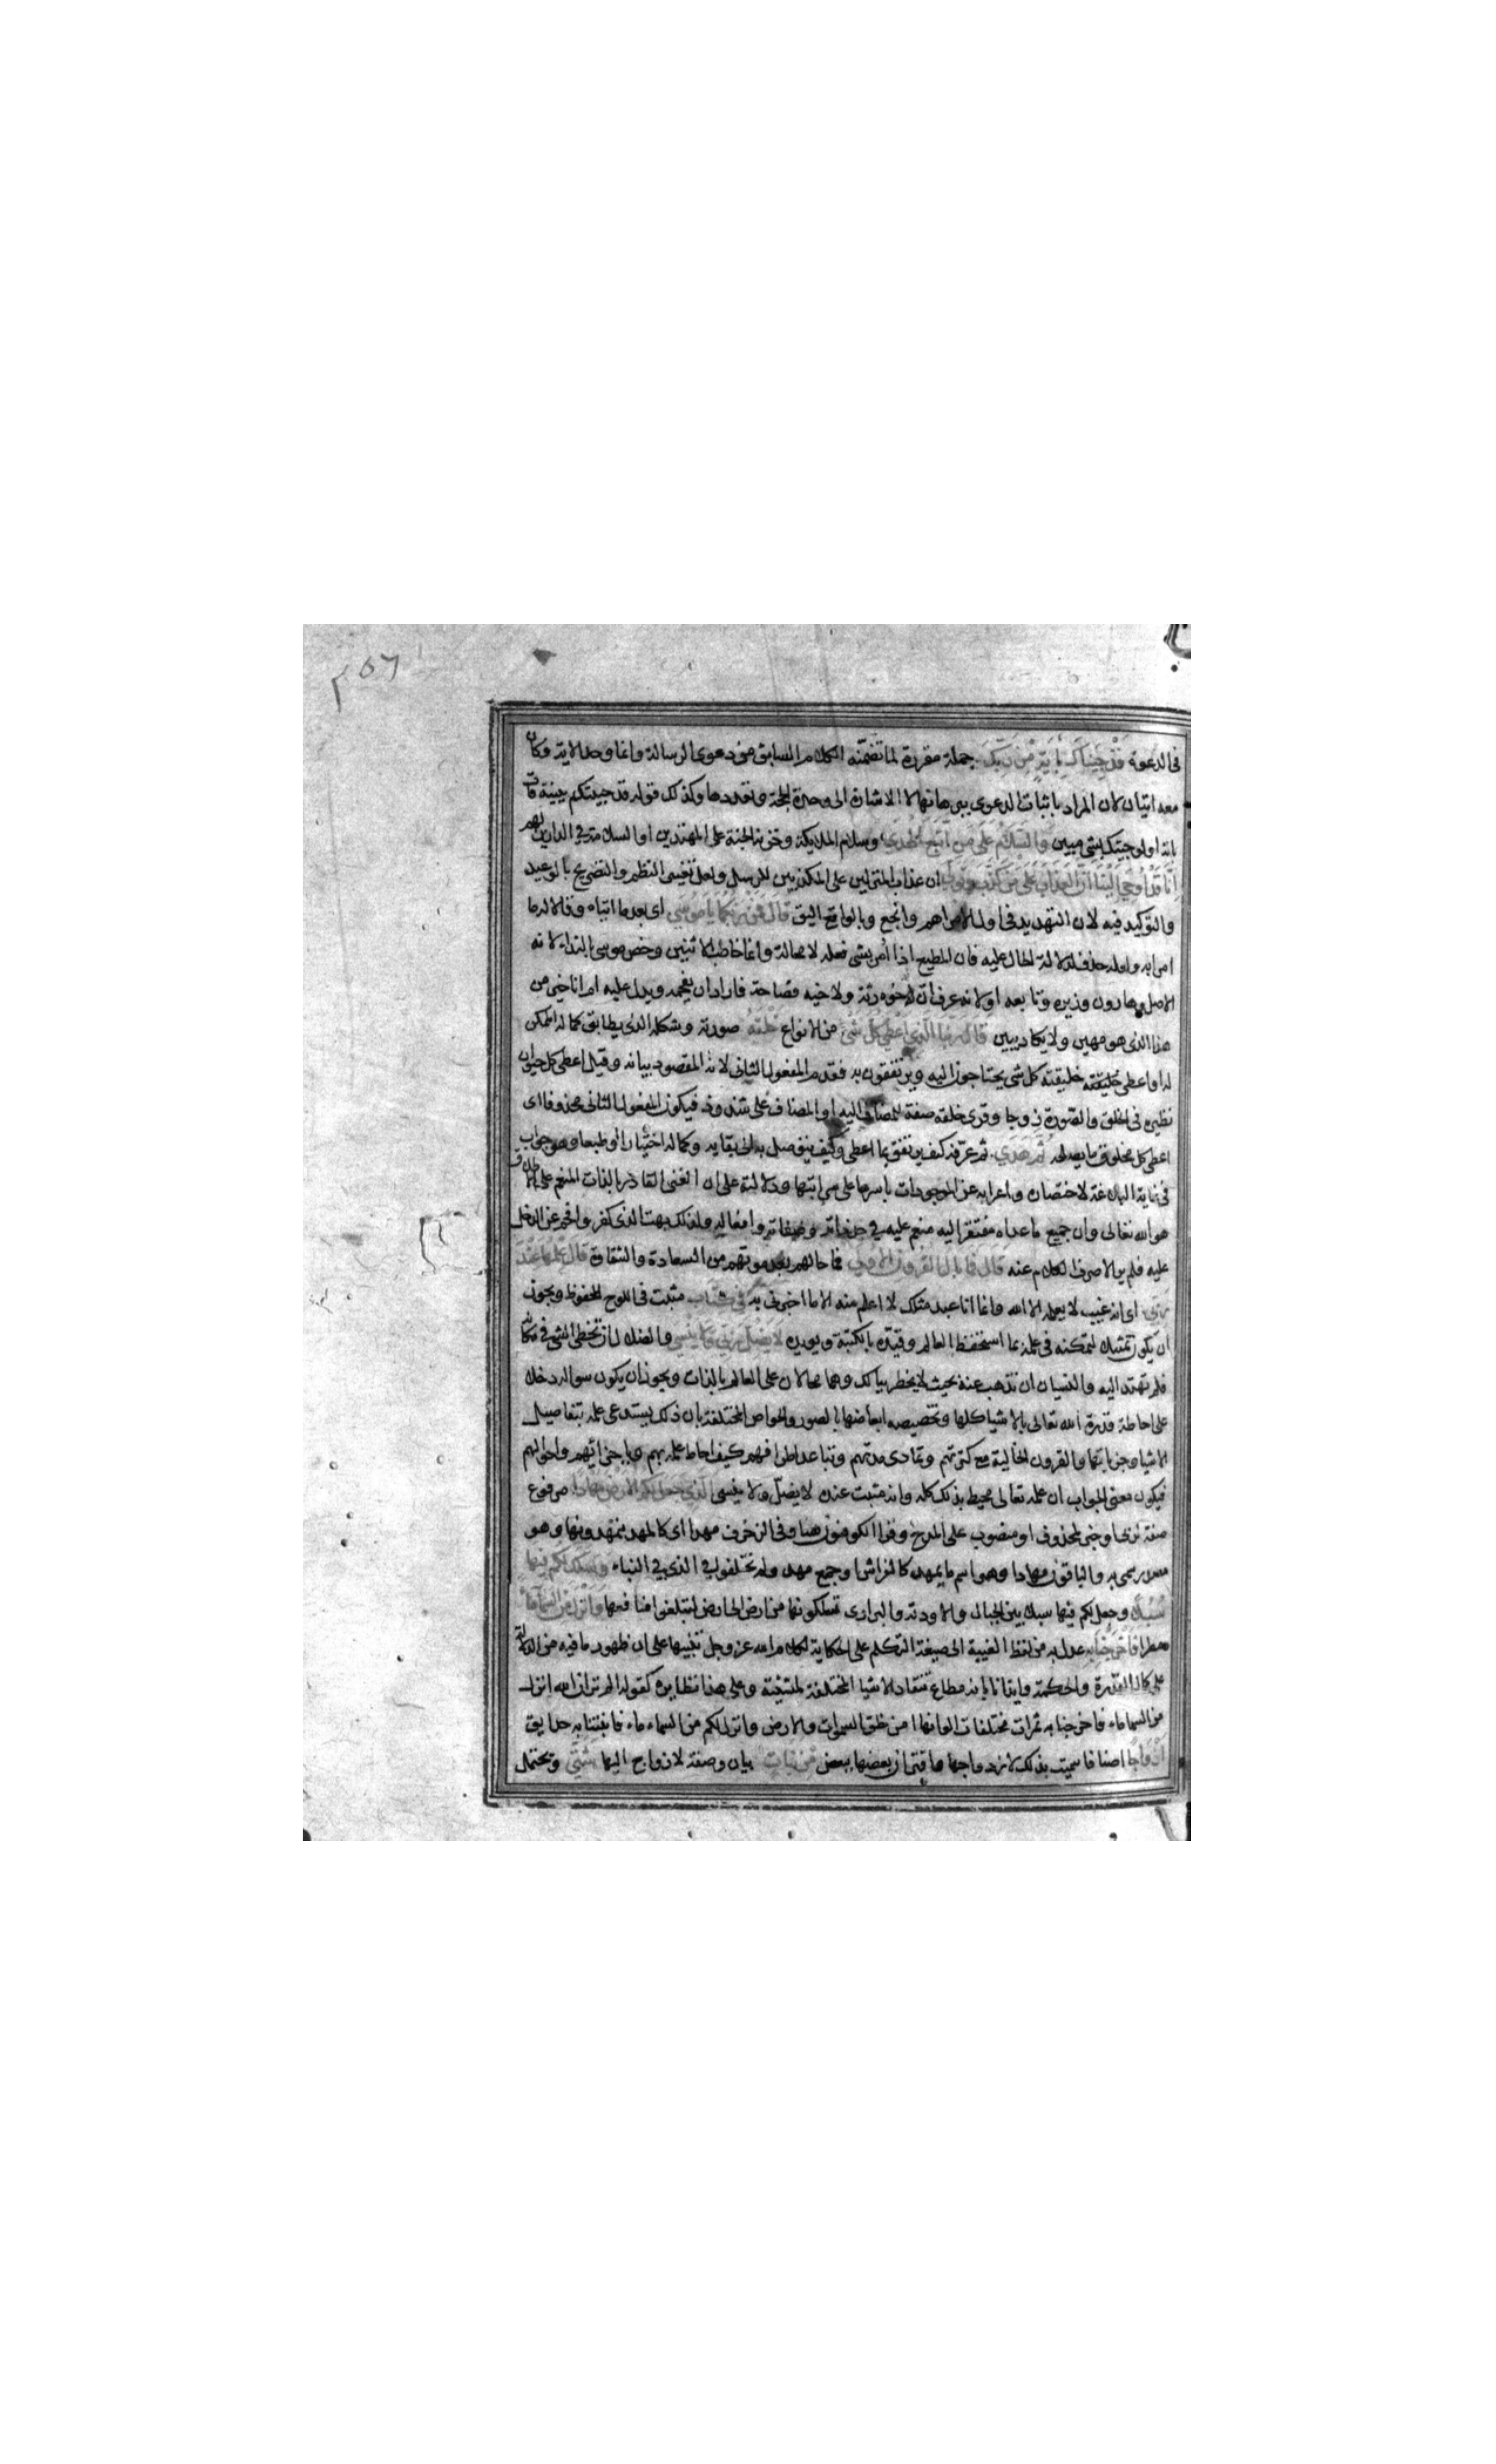 ٢٥٦
فى الدعوة قَدْ جِئْنَاكَ بِآيَةٍ مِنْ رَبِّكَ جملة مقررة لما تضمنه الكلام السابق من دعوى الرسالة وانما وحد الاية وكان
معه ايتان لان المراد باثبات الدعوى ببرهانها لا الاشارة الى وحدة الحجة وتعددها وكذلك قوله قد جيتكم ببينة فات
باية اولو جيتك بشى مبين وَالسَّلَامُ عَلَى مَنِ اتَّبَعَ الْهُدَى وسلام الملايكة وخزنة الجنة على المهتدين او السلامة في الدارين لهم
اِنَّا قَدْ اُوحِيَ اِلَيْنَا اَنَّ الْعَذَابَ عَلَى مَنْ كَذَّبَ وَتَوَلَّى ان عذاب المنزلين على المكذبين للرسل ولعل تغيير النظم والتصريح بالوعيد
والتوكيد فيه لان التهديد فى اول الامر اهم وانجع وبالواقع اليق قَالَ فَمَنْ رَبُّكُمَا يَا مُوسَى اى بعد ما اتياه وقالا له ما
امرا به ولعله حذف لدلالة الحال عليه فان المطيع اذا اُمر بشى فعله لا محالة وانما خاطب الاثنين وخص موسى بالنداء لانه
الاصل وهارون وزيره وتابعه او لانه عرف ان له رتة ولاخيه فصاحة فاراد ان يفحمه ويدل عليه ام انا خير من
هذا الذى هو مهين ولا يكاد يبين قَالَ رَبُّنَا الَّذِي اَعْطَى كُلَّ شَيْءٍ من الانواع خَلْقَهُ صورته وشكله الذى يطابق كماله الممكن
له او اعطى خليقته كل شى يحتاجون اليه ويرتفقون به فقدم المفعول الثانى لانه المقصود بيانه وقيل اعطى كل حيوان
نظيره فى الخلق والصورة زوجا وقرى خلقه صفة للمضاف اليه او المضاف على شذوذ فيكون المفعول الثانى محذوفا اى
اعطى كل مخلوق ما يصلحه ثُمَّ هَدَى ثم عرّفه كيف يرتفق بما اعطى وكيف يتوصل به الى بقايه وكماله اختيارا او طبعا وهو جواب
فى غاية البلاغة لاختصاره واعرابه عن الموجودات باسرها على مراتبها ودلالته على ان الغنى القادر بالذات المنعم على الاطلاق
هو الله تعالى وان جميع ما عداه مفتقر اليه منعم عليه في حد ذاته وصفاته وافعاله ولذلك بهت الذى كفر وافحم عن الدخل
عليه فلم ير الا صرف الكلام عنه قَالَ فَمَا بَالُ الْقُرُونِ الْأُولَى فما حالهم بعد موتهم من السعادة والشقاوة قَالَ عِلْمُهَا عِنْدَ
رَبِّي اى انه غيب لا يعلمه الا الله وانما انا عبد مثلك لا اعلم منه الا ما اخبرنى به فِي كِتَابٍ مثبت فى اللوح المحفوظ ويجوز
ان يكون تمثيلا لتمكنه فى علمه بما استحفظه العالم وقيّده بالكتبة ويويده لَا يَضِلُّ رَبِّي وَلَا يَنْسَى والضلال ان تخطى الشى فى مكانه
فلم تهتد اليه والنسيان ان تذهب عنه بحيث لا يخطر ببالك وهما محالان على العالم بالذات ويجوز ان يكون سواله دخلا
على احاطة قدرة الله تعالى بالاشيا كلها وتخصيصه ابعاضها بالصور والخواص المختلفة بان ذلك يستدعى علمه بتفاصيل
الاشيا وجزياتها والقرون الخالية مع كثرتهم وتمادى مدتهم وتباعد اطرافهم كيف احاط علمه بهم وباجزائهم واحوالهم
فيكون معنى الجواب ان علمه تعالى محيط بذلك كله وانه مثبت عنده لا يضلّ ولا ينسى الَّذِي جَعَلَ لَكُمُ الْأَرْضَ مِهَادًا مرفوع
صفة لربى او خبر لمحذوف او منصوب على المدح وقرا الكوفيون هنا وفى الزخرف مهدا اى كالمهد يتمهدونها وهو
مصدر سمى به والباقون مهادا وهو اسم ما يمهد كالفراش او جمع مهد ولم تختلفوا فى الذى في النباء وَسَلَكَ لَكُمْ فِيهَا
سُبُلًا وجعل لكم فيها سبلا بين الجبال والاودية والبرارى تسلكونها من ارض الى ارض لتبلغوا منافعها وَأَنْزَلَ مِنَ السَّمَاءِ مَاءً
مطرا فَأَخْرَجْنَا بِهِ عدل به من لفظ الغيبة الى صيغة التكلم على الحكاية لكلام الله عز وجل تنبيها على ان ظهور ما فيه من الدلالة
على كمال القدرة والحكمة وايذانا بانه مطاع تنقاد الاشيا المختلفة لمشيته وعلى هذا نظايره كقوله الم تر ان الله انزل
من السما ماء فاخرجنا به ثمرات مختلفات الوانها امن خلق السموات والارض وانزل لكم من السماء ماء فانبتنا به حدايق
أَزْوَاجًا اصنافا سميت بذلك لازدواجها واقتران بعضها ببعض مِنْ نَبَاتٍ بيان وصفة لازواج اليها شَتَّى وتحتمل